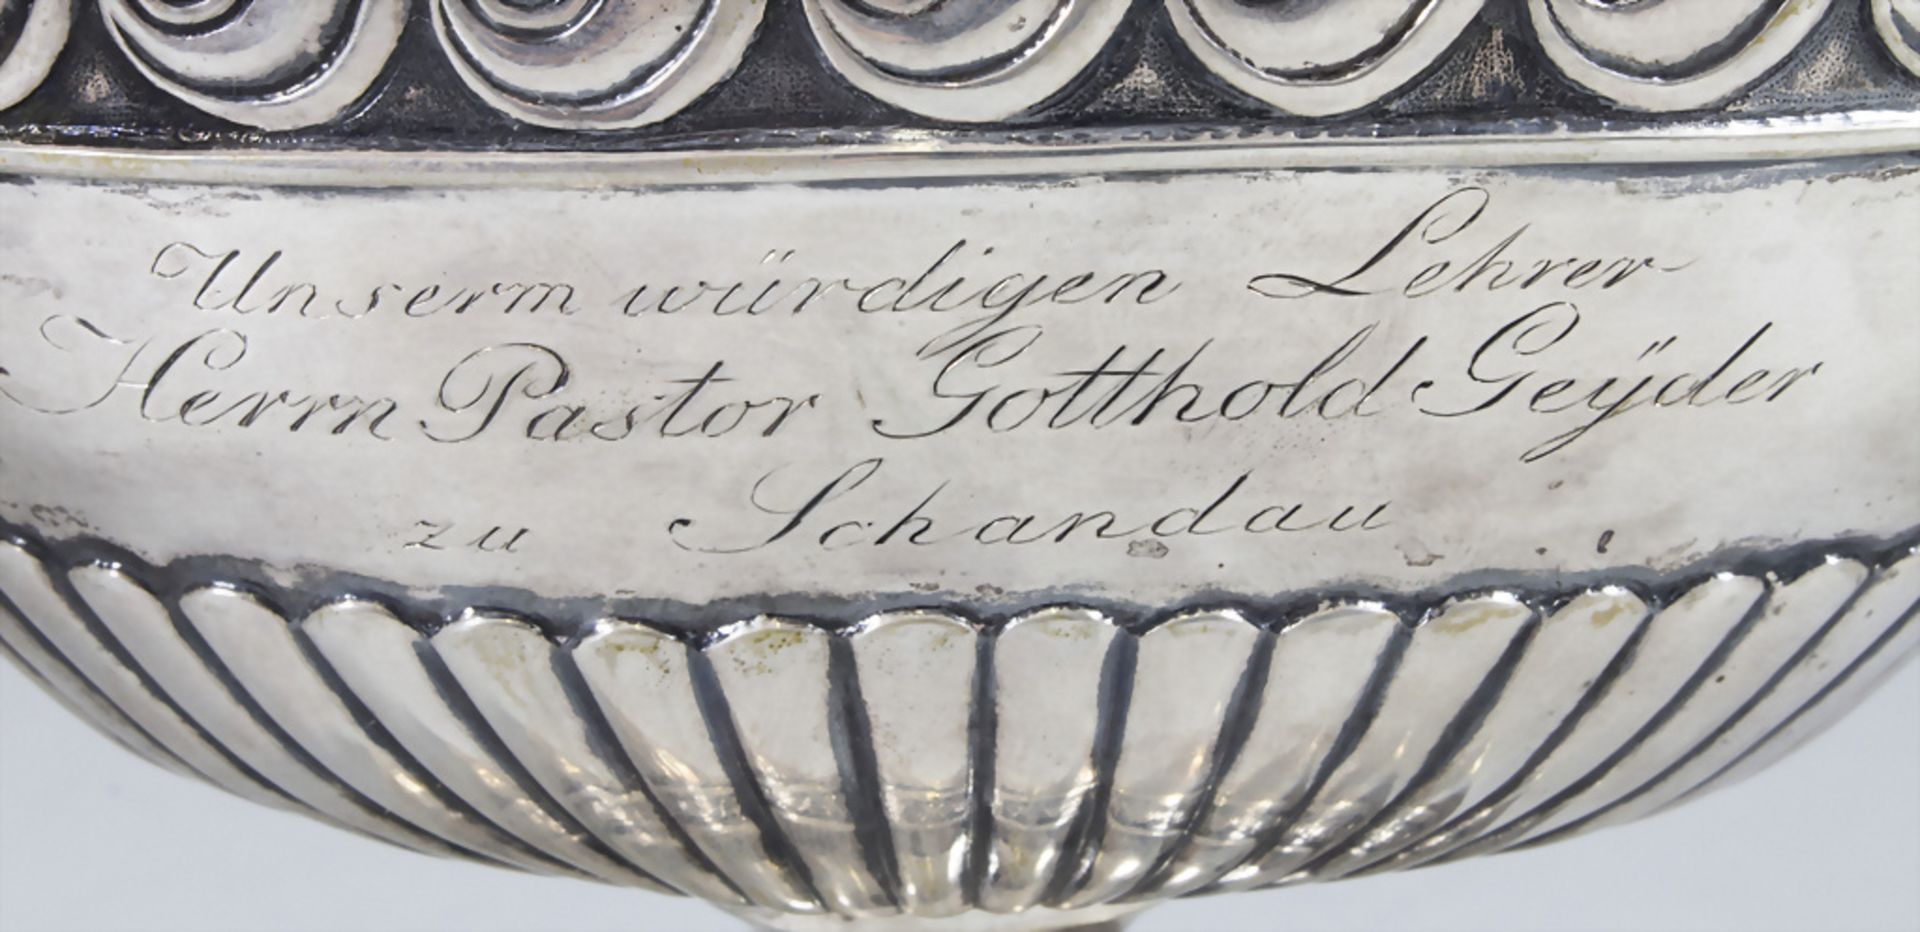 Unserm würdigen Lehrer
Herrn Pastor Gotthold Geÿder
zu Schandau